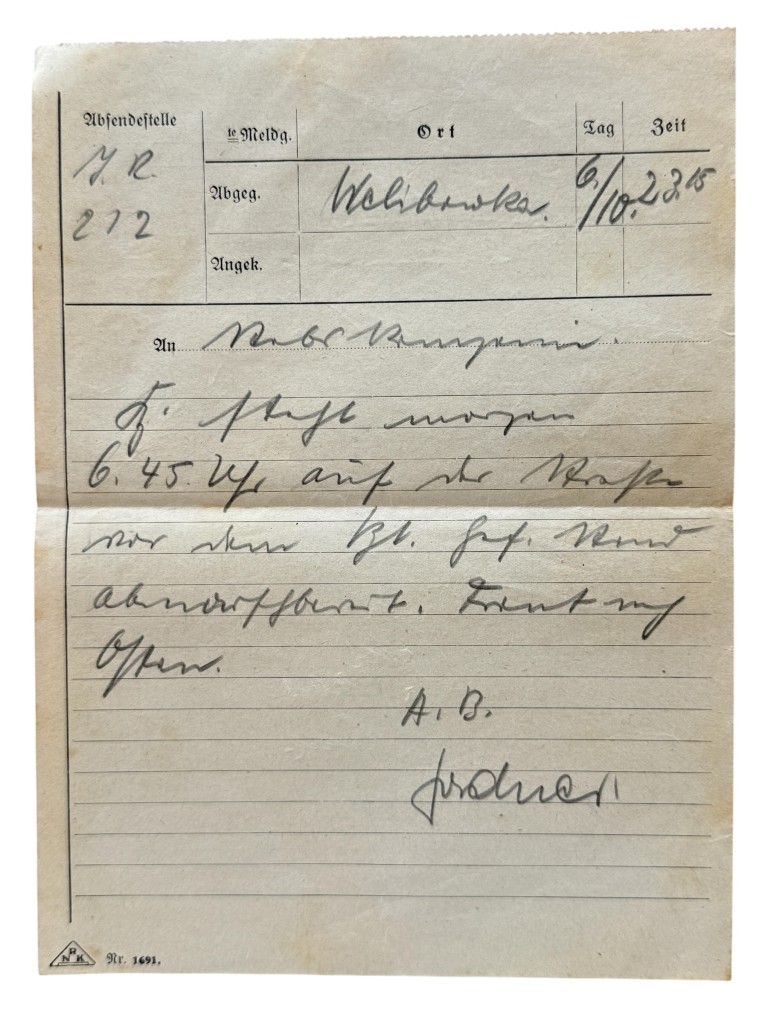 Absendestelle
te Meldg.
Ort
Tag
Zeit
J. R.
212
Abgeg.
Welibowka.
6./10.
23.15
Angek.
An Stabskompanie.
steht morgen
6.45 Uhr auf der Straße
vor dem Btl. Gef. Stand
abmarschbereit. Front nach
Osten.
A. B.
NBK
Nr. 1691.